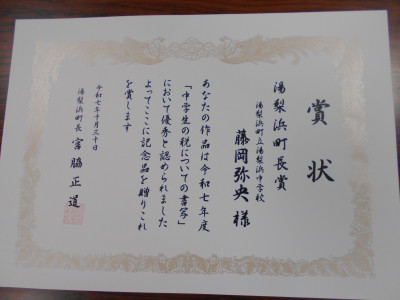 賞状
湯梨浜町長賞
湯梨浜町立湯梨浜中学校
藤岡弥央様
あなたの作品は令和七年度
「中学生の税についての書写」
において優秀と認められました
よってここに記念品を贈りこれ
を賞します
令和七年十月三十日
湯梨浜町長 宮脇正道